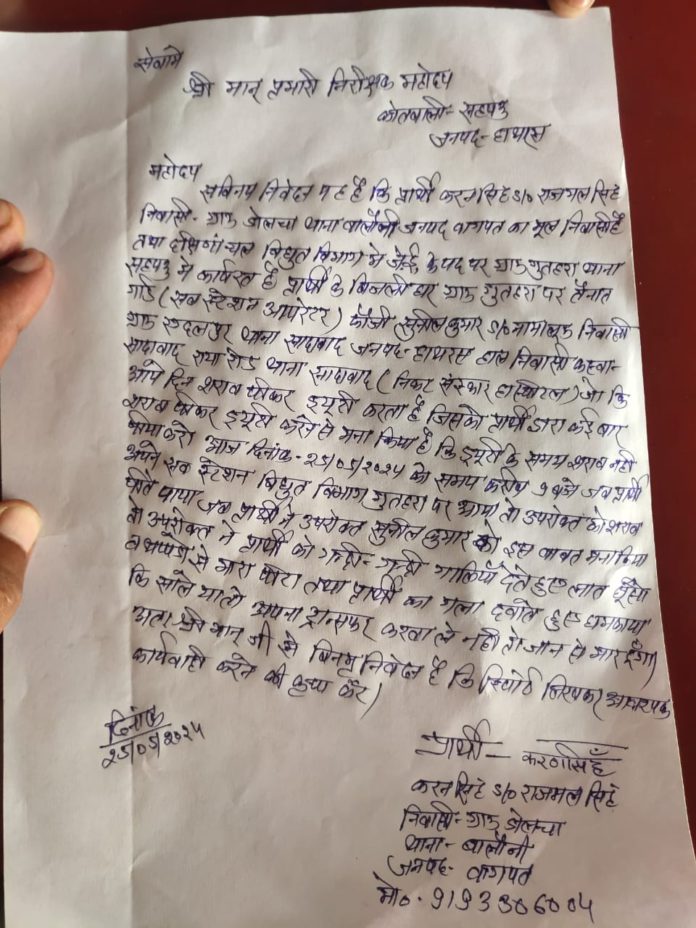 सेवामे
श्री मान् प्रभारी निरीक्षक महोदय
कोतवाली- सहपऊ
जनपद- हाथरस
महोदय
सविनय निवेदन यह है कि प्रार्थी करन सिंह S/o राजमल सिंह
निवासी- ग्राम डोलचा थाना बालौनी जनपद बागपत का मूल निवासी है
तथा दक्षिणांचल विद्युत विभाग में जेई के पद पर ग्राम गुतहरा थाना
सहपऊ में कार्यरत है प्रार्थी के बिजली घर ग्राम गुतहरा पर तैनात
गार्ड (सब स्टेशन आपरेटर) फौजी सुनील कुमार S/o नामालूम निवासी
ग्राम एदलपुर थाना सादाबाद जनपद- हाथरस हाल निवासी कस्बा-
सादाबाद राया रोड थाना सादाबाद (निकट संस्कार हास्पिटल) जो कि
आये दिन शराब पीकर ड्यूटी करता है जिसको प्रार्थी द्वारा कई बार
शराब पीकर ड्यूटी करने से मना किया है कि ड्यूटी के समय शराब नही
पीया करो आज दिनांक- 25/05/2024 को समय करीब 9 बजे जब प्रार्थी
अपने सब स्टेशन विद्युत विभाग गुतहरा पर आया तो उपरोक्त को शराब
पीते पाया जब प्रार्थी ने उपरोक्त सुनील कुमार को इस बाबत मना किया
तो उपरोक्त ने प्रार्थी को गन्दी- गन्दी गालियाँ देते हुए लात घूँसो
व थप्पडो से मारा पीटा तथा प्रार्थी का गला दबाते हुए धमकाया
कि साले या तो अपना ट्रान्सफर करवा ले नही तो जान से मार दूँगा।
अतः श्री मान जी से विनम्र निवेदन है कि रिपोर्ट लिखकर आवश्यक
कार्यवाही करने की कृपा करें।
दिनांक
25/05/2024
प्रार्थी- करन सिंह
करन सिंह S/o राजमल सिंह
निवासी- ग्राम डोलचा
थाना- बालौनी
जनपद- बागपत
मो०- 9193306004